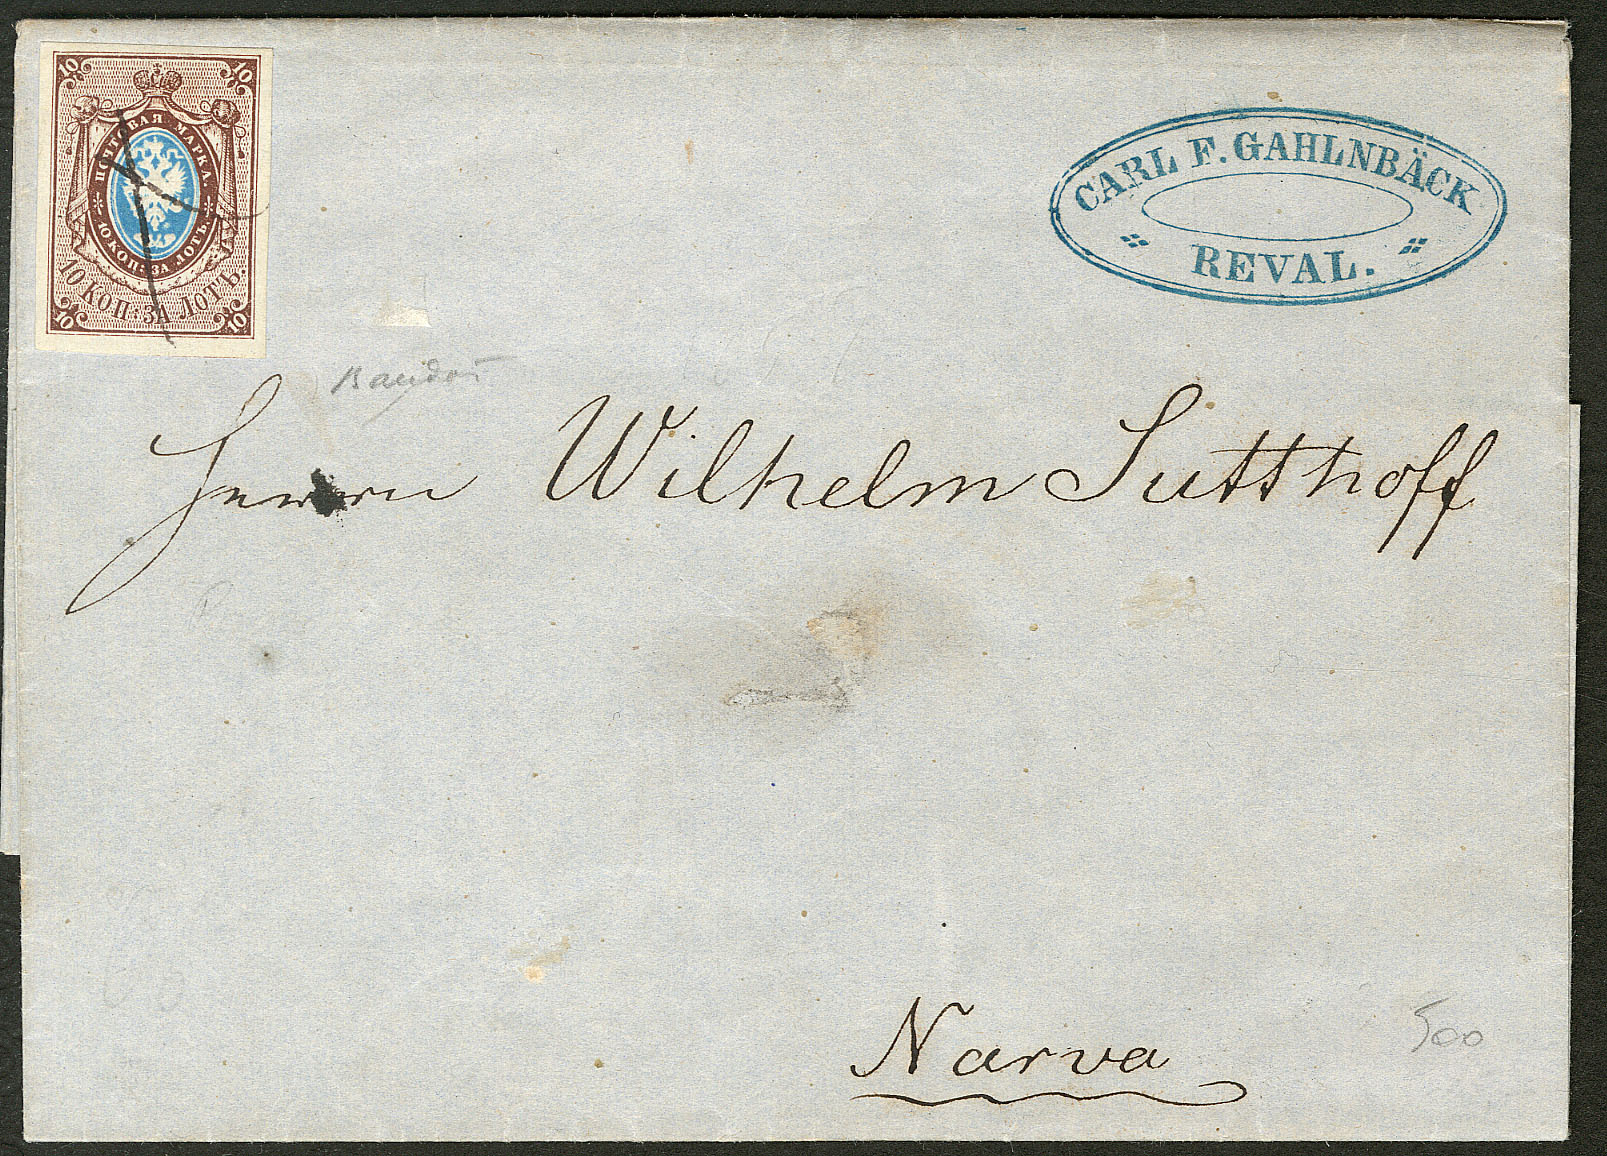 10 10
ПОЧТОВАЯ МАРКА.
* 10 КОП: ЗА ЛОТЪ. *
10 КОП: ЗА ЛОТЪ.
10 10
CARL F. GAHLNBÄCK
REVAL.
Herrn Wilhelm Sutthoff
Narva
500